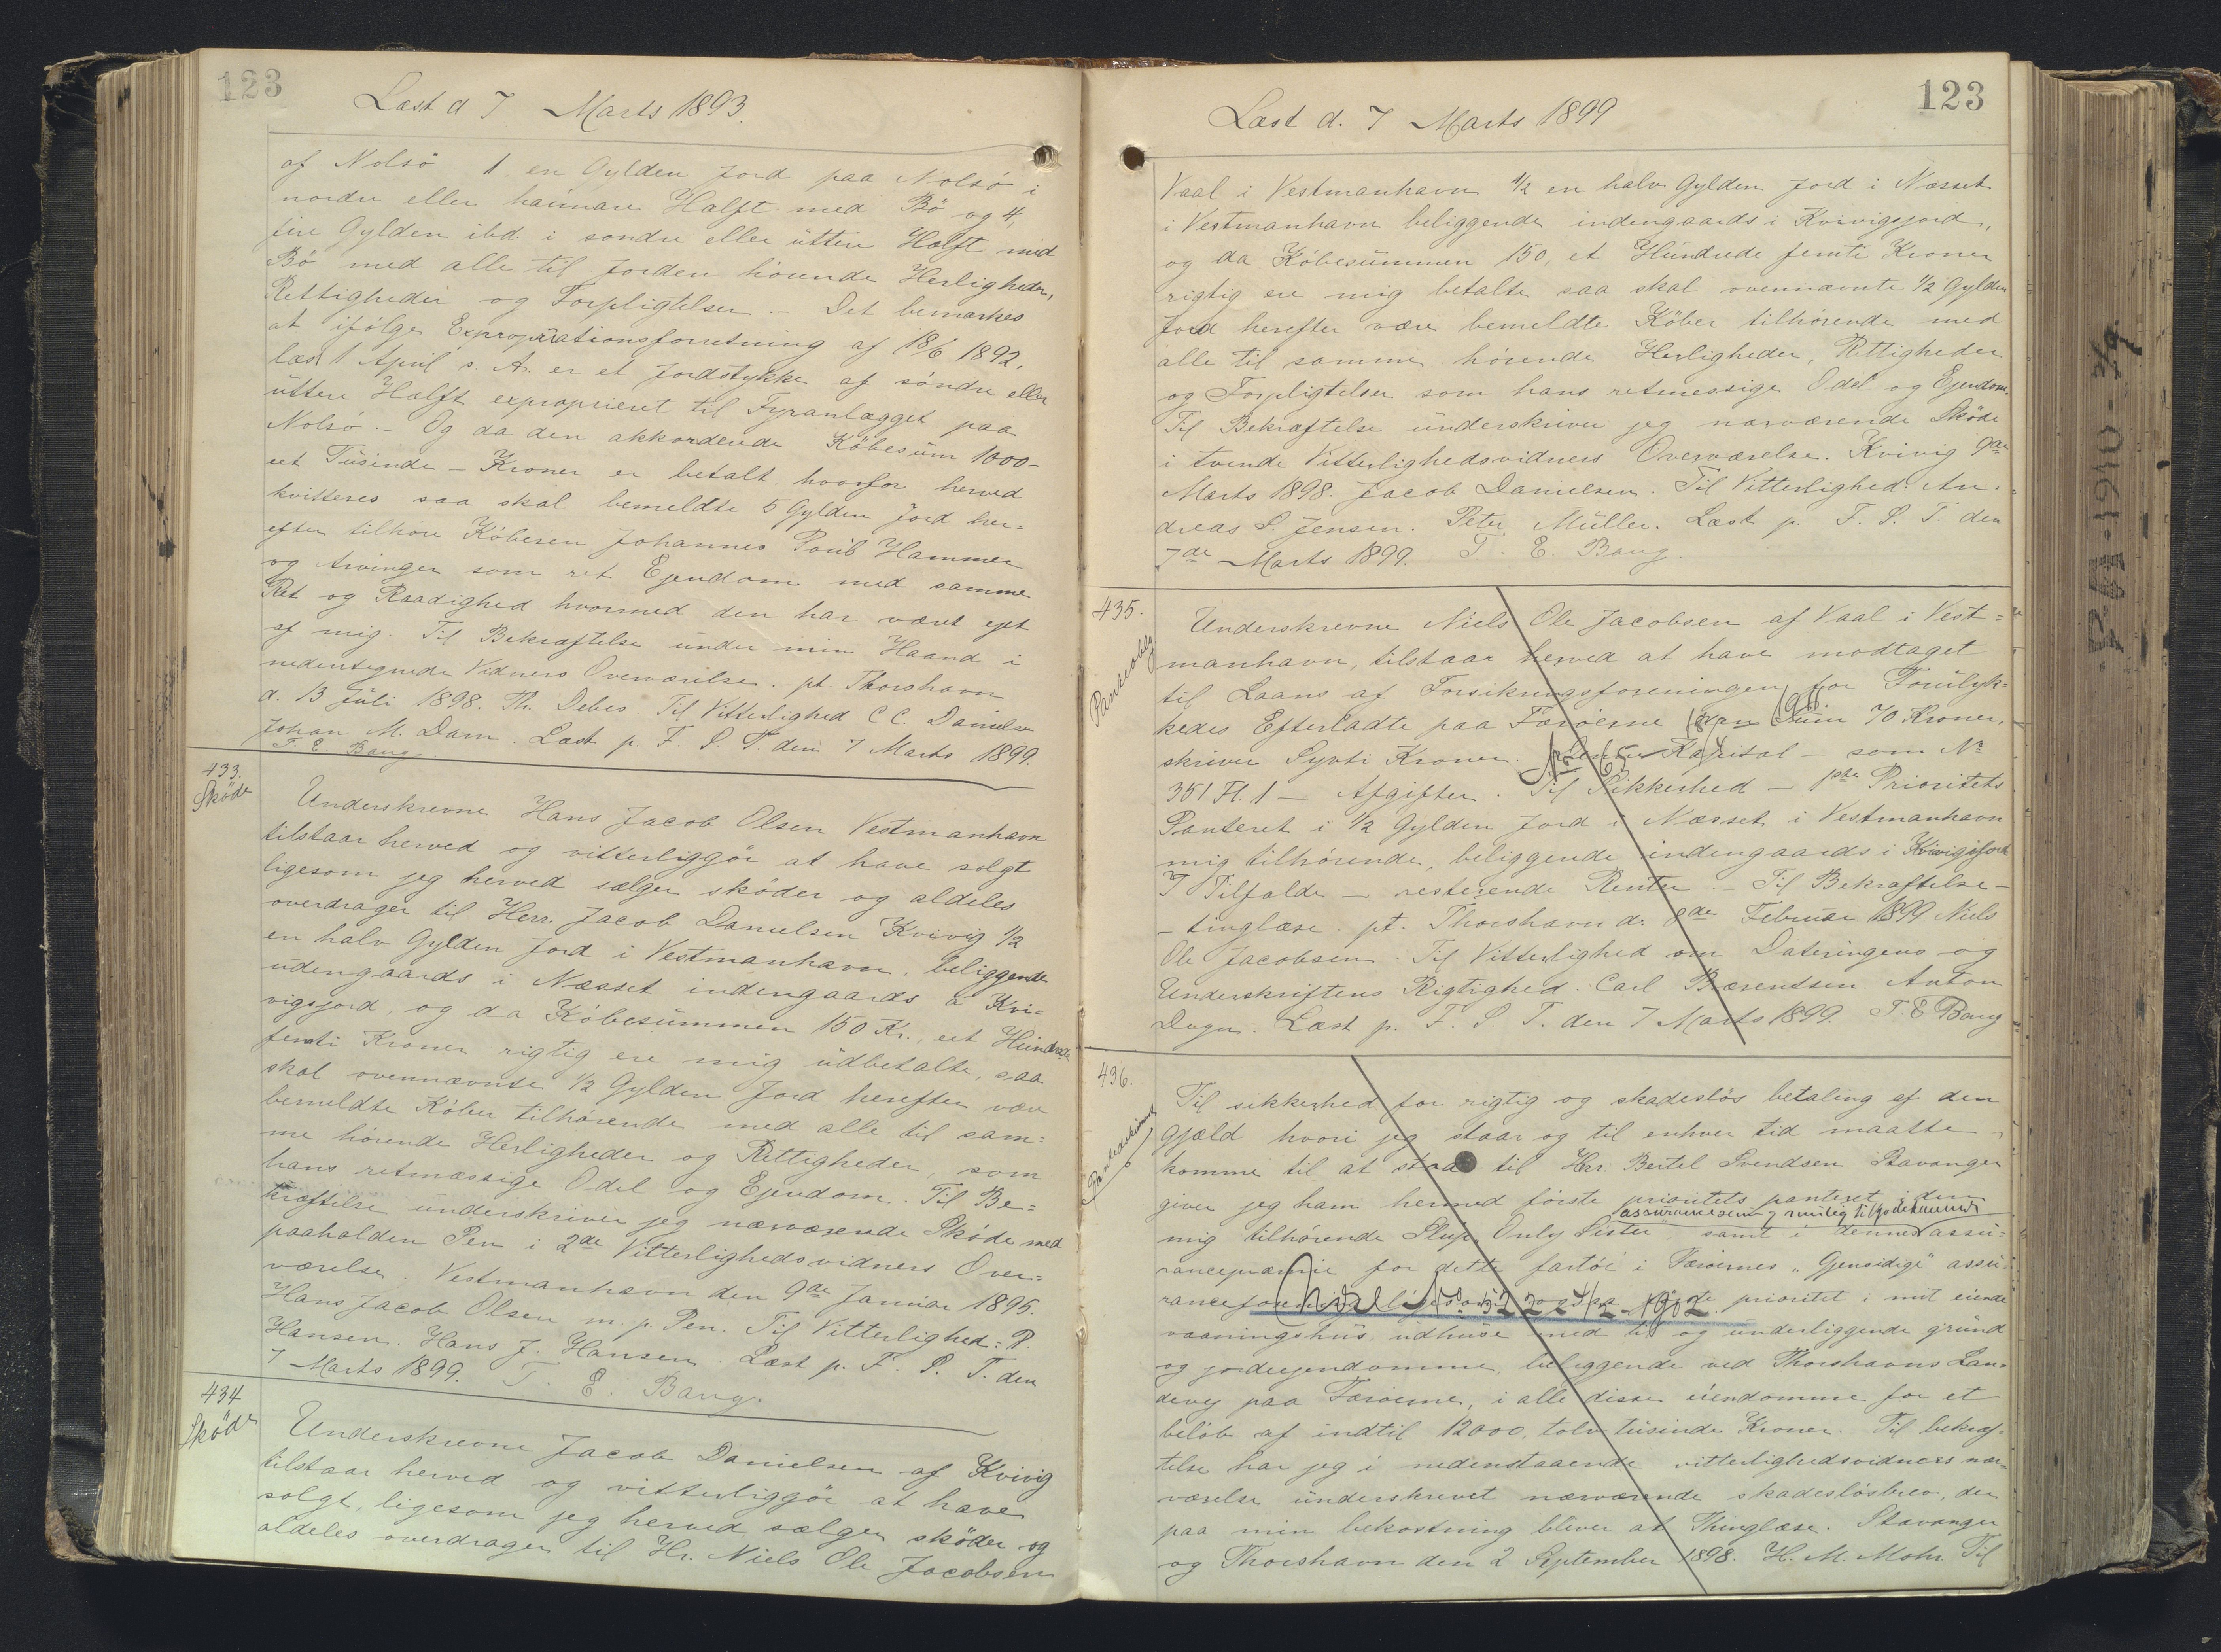 123
Læst d 7 Marts 1893.
af Nolsö 1 en Gylden Jord paa Nolsö i
nordre eller heimare Halft med Bö og 4,
fire Gylden ibd. i sondre eller üttere Halft med
Bö med alle til Jorden hörende Herligheder,
Rettigheder og Forpligtelser. – Det bemærkes
at ifölge Expropriationsforretning af 18/6 1892,
læst 1 April s. A. er et Jordstykke af söndre eller
üttere Halft exproprieret til Fyranlægget paa
Nolsö. – Og da den akkorderede Köbesüm 1000 –
eet Tüsinde – Kroner er betalt hvorfor herved
kvitteres saa skal bemeldte 5 Gylden Jord her=
efter tilhöre Köberen Johannes Poül Hammer
og Arvinger som ret Ejendom med samme
Ret og Raadighed hvormed den har været ejet
af mig. Til Bekræftelse ünder min Haand i
nedentegnede Vidners Overværelse. pt. Thorshavn
d. 13 Jüli 1898. Th. Debes Til Vitterlighed C C. Danielsen
Johan M. Dam. Læst p. F. S. T. den 7 Marts 1899.
T. E. Bang
433.
Sköde
Underskrevne Hans Jacob Olsen Vestmanhavn
tilstaar herved og vitterliggör at have solgt
ligesom jeg herved sælger sköder og aldeles
overdrager til Herr. Jacob Danielsen Kvivig 1/2
en halv Gylden Jord i Vestmanhavn, beliggende
üdengaards i Næsset indengaards a Kvi=
vigsjord, og da Köbesümmen 150 Kr., eet Hündrede
femti Kroner rigtig ere mig üdbetalte, saa
skal ovennævnte 1/2 Gylden Jord herefter være
bemeldte Köber tilhörende med alle til sam=
me hörende Herligheder og Rettigheder, som
hans retmæssige Odel og Ejendom. Til Be=
kræftelse ünderskriver jeg nærværende Sköde med
paaholden Pen i 2de Vitterlighedsvidners Over=
værelse. Vestmanhavn den 9de Janüar 1895.
Hans Jacob Olsen m. p. Pen. Til Vitterlighed: R.
Hansen. Hans J. Hansen. Læst p. F. S. T. den
7 Marts 1899. T. E. Bang.
434
Sköde
Underskrevne Jacob Danielsen af Kvivig
tilstaar herved og vitterliggör at have
solgt, ligesom jeg herved sælger sköder og
aldeles overdrager til Hr. Niels Ole Jacobsen
123
Læst d. 7 Marts 1899
Vaal i Vestmanhavn 1/2 en halv Gylden Jord i Næsset
i Vestmanhavn beliggende indengaards i Kvivigsjord,
og da Köbesümmen 150, et Hündrede femti Kroner
rigtig ere mig betalte saa skal ovennævnte 1/2 Gylden
Jord herefter være bemeldte Köber tilhörende med
alle til samme hörende Herligheder, Rettigheder
og Forpligtelser som hans retmessige Odel og Ejendom.
Til Bekræftelse ünderskriver jeg nærværende Sköde
i tvende Vitterlighedsvidners Overværelse. Kvivig 9de
Marts 1898. Jacob Danielsen. Til Vitterlighed: An=
dreas S. Jensen. Peter Müller. Læst p. F. S. T. den
7de Marts 1899. T. E. Bang
435.
Panteobl
Underskrevne Niels Ole Jacobsen af Vaal i Vest=
manhavn, tilstaar herved at have modtaget
til Laans af Forsikringsforeningen for Forülyk=
kedes Efterladte paa Færöerne en Süm 70 Kroner,
skriver Syvti Kroner. Kapital – som No
351 Fl. 1 – Afgifter. Til Sikkerhed – 1ste Prioritets
Panteret i 1/2 Gylden Jord i Næsset i Vestmanhavn
mig tilhörende, beliggende indengaards i Kvivigsjord
I Tilfælde – resterende Renter. – Til Bekræftelse –
– tinglæse. pt. Thorshavn d. 8de Febrüar 1899 Niels
Ole Jacobsen. Til Vitterlighed om Dateringens og
Underskriftens Rigtighed. Carl Bærentsen. Anton
Degn. Læst p. F. S. T. den 7 Marts 1899. T. E Bang
436.
Til sikkerhed for rigtig og skadeslös betaling af den
Gjæld hvori jeg staar og til enhver tid maatte
komme til at staa til Hr. Bertel Svendsen Stavanger
giver jeg ham hermed förste prioritets panteret i den
assurancesum og mulig tilgodekommende
mig tilhörende Slup „Only Sister“ samt i dennes assü=
rancepræmie for dette fartöi i Færöernes „Gjensidige“ assü=
prioritet i mit eiende
vaaningshüs üdhüse med til og ünderliggende gründ
og jordeejendomme, beliggende ved Thorshavns Lan=
devej paa Færöerne, i alle disse eiendomme for et
belöb af indtil 12000, tolv tüsinde Kroner. Til bekræf=
telse har jeg i nedenstaaende vitterlighedsvidners nær=
værelse ünderskrevet nærværende skadeslösbrev, der
paa min bekostning bliver at Thinglæse. Stavanger
og Thorshavn den 2 September 1898. H. M. Mohr. Til